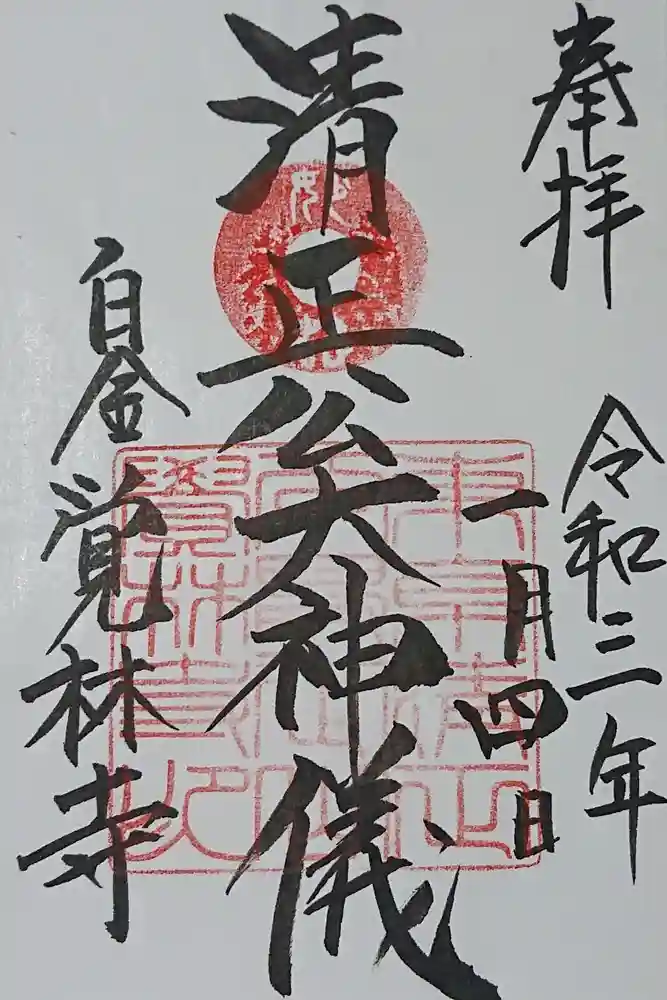 奉拝
令和三年
一月四日
清正公大神儀
白金覚林寺